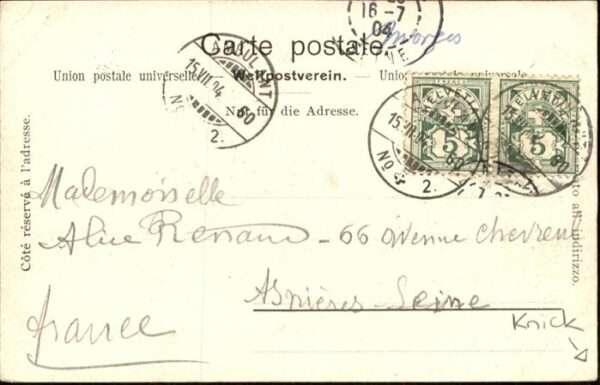 16-7
04
Carte postale.
Union postale universelle. Weltpostverein. Unione postale universale.
Nur für die Adresse.
AMBULANT
15.VII.04
60
No
2.
HELVETIA
5
HELVETIA
5
15.VII.04
60
No
2.
Côté réservé à l'adresse.
Mademoiselle
Alice Renaud - 66 Avenue Chevreul
Asnières-Seine
France
Knick